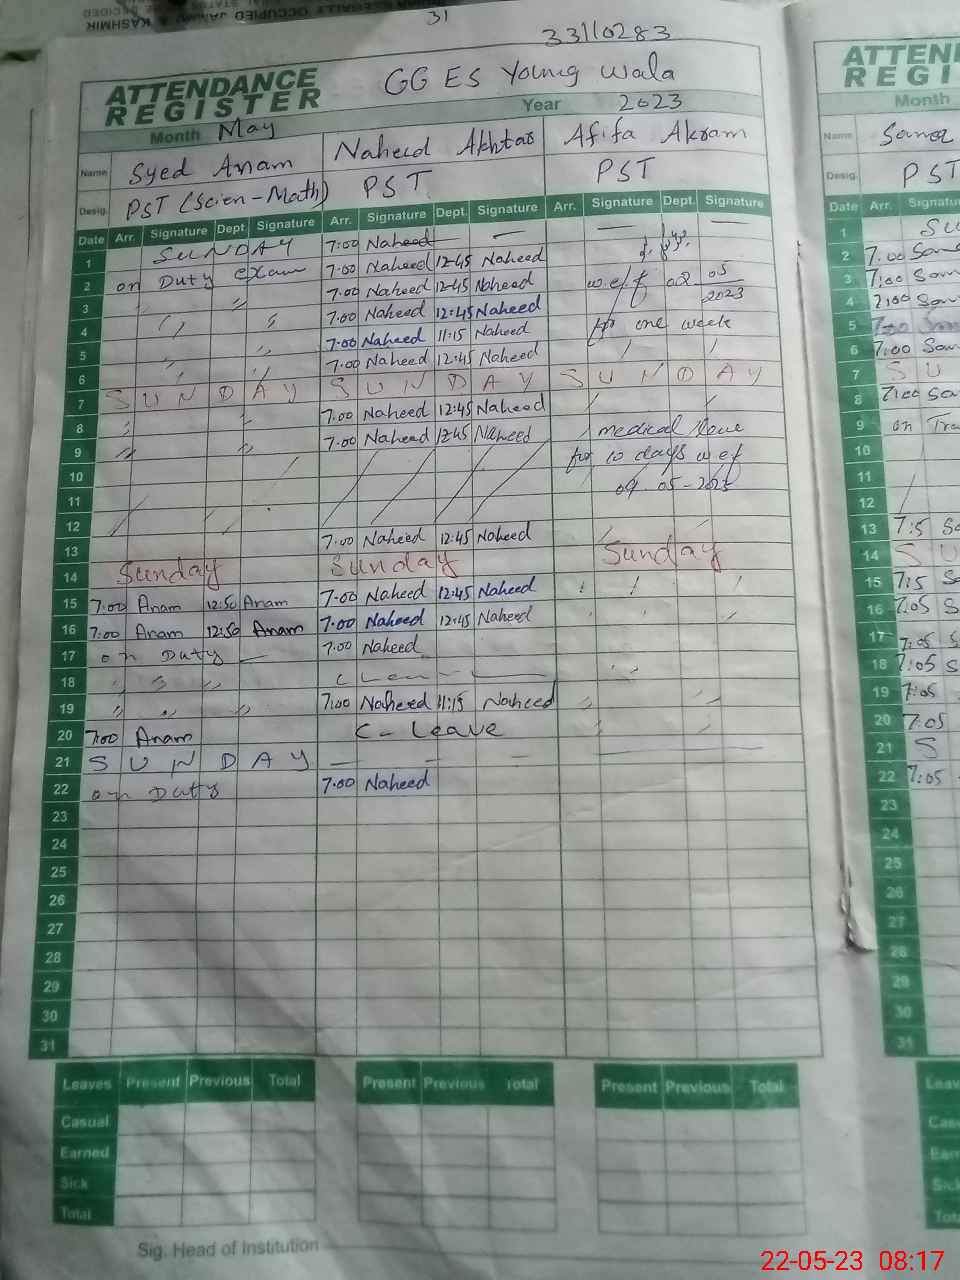 31
33110283
ATTENDANCE REGISTER
GG ES Young Wala
Month May Year 2023
Name Syed Anam Naheed Akhtar Afifa Akram
Desig. PST (Scien-Math) PST PST
Date Arr. Signature Dept. Signature Arr. Signature Dept. Signature Arr. Signature Dept. Signature
1 SUNDAY 7:00 Naheed — — —
2 on Duty exam 7:00 Naheed 12-45 Naheed
3 〃 7:00 Naheed 12-45 Naheed w.e/f 02 05 2023
4 〃 〃 7:00 Naheed 12:45 Naheed
5 〃 〃 7:00 Naheed 11:15 Naheed for one week
6 〃 〃 7:00 Naheed 12:45 Naheed
7 SUNDAY SUNDAY SUNDAY
8 〃 〃 7:00 Naheed 12:45 Naheed
9 〃 〃 7:00 Naheed 12:45 Naheed medical
10 for 10 days w ef
11
12
13 7:00 Naheed 12:45 Naheed
14 Sunday Sunday Sunday
15 7:00 Anam 12:50 Anam 7:00 Naheed 12:45 Naheed
16 7:00 Anam 12:50 Anam 7:00 Naheed 12:45 Naheed
17 on Duty — 7:00 Naheed
18 〃 〃 〃
19 〃 〃 〃 7:00 Naheed 11:15 Naheed
20 7:00 Anam C- Leave
21 SUNDAY — — —
22 on Duty 7:00 Naheed
23
24
25
26
27
28
29
30
31
Leaves Present Previous Total Present Previous Total Present Previous Total
Casual
Earned
Sick
Total
Sig. Head of Institution
ATTEN
REGI
Month
Name
Desig. PST
Date Arr. Signatu
1 SU
2 7:00
3 7:00
4 7:00
5 7:00
6 7:00
7 SU
8 7:00
9 on Tra
10
11
12
13 7:5
14 SU
15 7:5
16 7:05
17 7:05
18 7:05
19 7:05
20 7:05
21 S
22 7:05
23
24
25
26
27
28
29
30
31
Leav
Cas
Earn
Sick
Tot
22-05-23 08:17